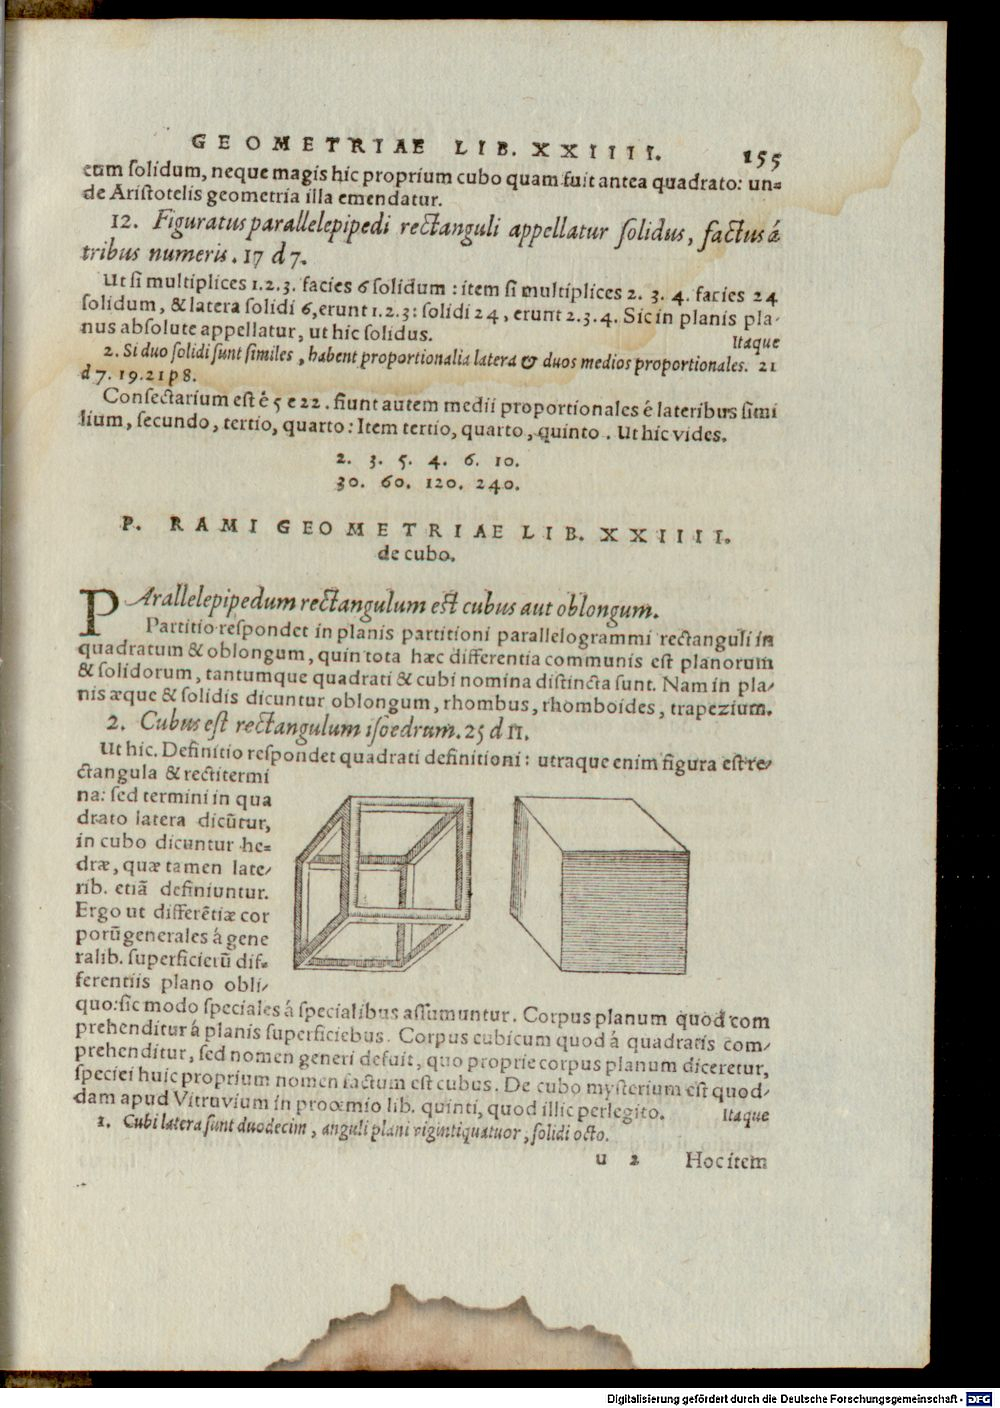 GEOMETRIAE LIB. XXIIII. 155
eum solidum, neque magis hic proprium cubo quam fuit antea quadrato: un=
de Aristotelis geometria illa emendatur.
12. Figuratus parallelepipedi rectanguli appellatur solidus, factus á
tribus numeris. 17 d 7.
Ut si multiplices 1.2.3. facies 6 solidum: item si multiplices 2. 3. 4. facies 24
solidum, & latera solidi 6, erunt 1.2.3: solidi 24, erunt 2.3.4. Sic in planis pla-
nus absolute appellatur, ut hic solidus. Itaque
2. Si duo solidi sunt similes, habent proportionalia latera & duos medios proportionales. 21
d 7. 19. 21 p 8.
Consectarium est é 5 e 22. fiunt autem medii proportionales é lateribus simi
lium, secundo, tertio, quarto: Item tertio, quarto, quinto. Ut hic vides.
2. 3. 5. 4. 6. 10.
30. 60. 120. 240.
P. RAMI GEOMETRIAE LIB. XXIIII.
de cubo.
PArallelepipedum rectangulum est cubus aut oblongum.
Partitio respondet in planis partitioni parallelogrammi rectanguli in
quadratum & oblongum, quin tota hæc differentia communis est planorum
& solidorum, tantumque quadrati & cubi nomina distincta sunt. Nam in pla-
nis æque & solidis dicuntur oblongum, rhombus, rhomboides, trapezium.
2. Cubus est rectangulum isoedrum. 25 d 11.
Ut hic. Definitio respondet quadrati definitioni: utraque enim figura est re-
ctangula & rectitermi
na: sed termini in qua
drato latera dicũtur,
in cubo dicuntur he=
dræ, quæ tamen late-
rib. etiã definiuntur.
Ergo ut differẽtiæ cor
porũ generales á gene
ralib. superficierũ dif=
ferentiis plano obli-
quo: sic modo speciales á specialibus assumuntur. Corpus planum quod com
prehenditur á planis superficiebus. Corpus cubicum quod á quadratis com-
prehenditur, sed nomen generi defuit, quo proprie corpus planum diceretur,
speciei huic proprium nomen factum est cubus. De cubo mysterium est quod-
dam apud Vitruvium in prooemio lib. quinti, quod illic perlegito. Itaque
1. Cubi latera sunt duodecim, anguli plani vigintiquatuor, solidi octo.
u 2 Hoc item
Digitalisierung gefördert durch die Deutsche Forschungsgemeinschaft - DFG